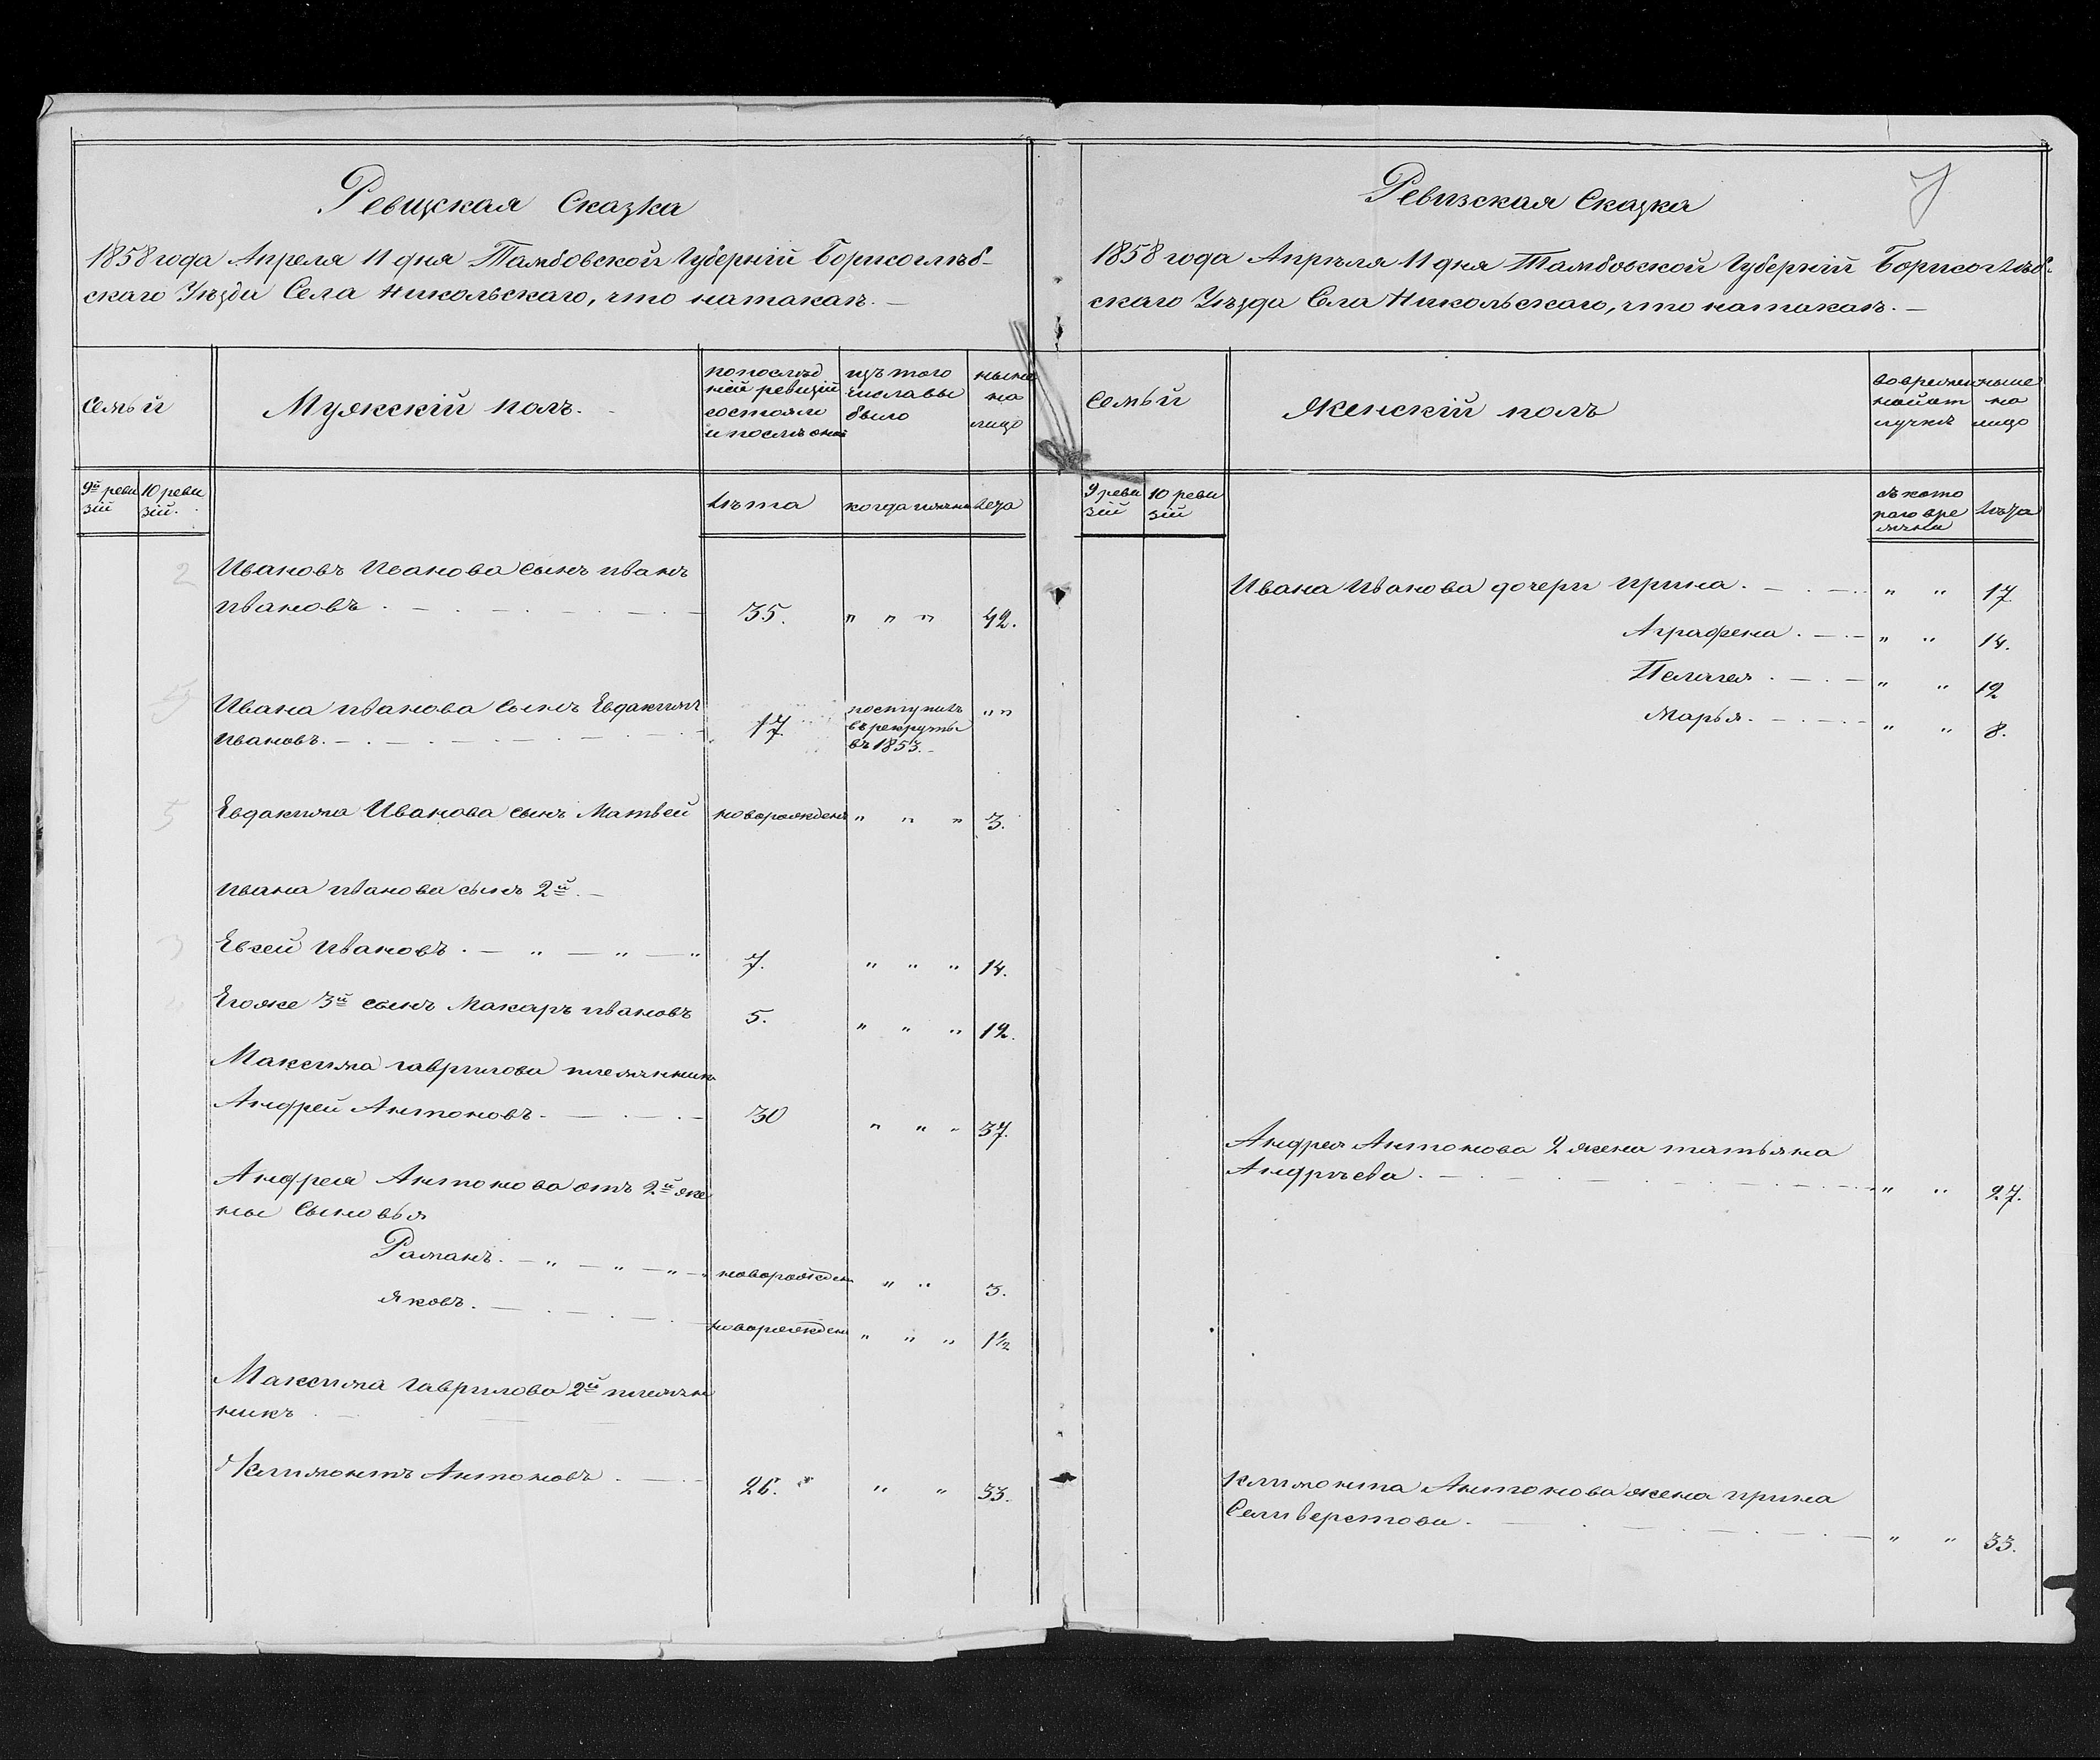 Ревизская Сказка
1858 года Апреля 11 дня Тамбовской Губерніи Борисоглѣб-
скаго Уѣзда Села Никольскаго, что на такак. —
Семьи
Мужскій полъ.
по послѣд
ній ревизіи
состояли
и послѣ оной
изъ того
числа вы
было
ныне
на
лицо
9й реви
зіи
10 реви
зіи.
Лѣта
когда имянно
Лета
2
Ивановъ Иванова сынъ иванъ
ивановъ . — 35. " " " 42.
Ивана иванова сынъ Евдакимъ
ивановъ. — 17 поступилъ
въ рекруты
въ 1853. — " "
5 Евдакима Иванова сынъ Матвей новорожденъ " " " 3.
Ивана иванова сынъ 2й. —
3 Евсей ивановъ . — " — " — " 7. " " " 14.
Егоже 3й сынъ Макаръ ивановъ 5. " " " 12.
Максима гаврилова племянникъ
Андрей Антоновъ. — 30 " " " 37.
Андрея Антонова отъ 2й же
ны Сыновья
Раманъ. — " — " — " — новорожден " " 3.
Яковъ. — новорожден " " " 1½
Максима гаврилова 2й племян
никъ
Климонтъ Антоновъ . — 26. " " 33.
Ревизская Сказка
7
1858 года Апрѣля 11 дня Тамбовской Губерніи Борисоглѣб-
скаго Уѣзда Села Никольскаго, что на такак. —
Семьи
Женскій полъ
во времен
ной от
лучкѣ
ныне
на
лицо
9 реви
зіи
10 реви
зіи
съ кото
раго вре
мяни
Лѣта
Ивана Иванова дочери ирина. — " " 17
Аграфена. — " " 14.
Пелагея. — " " 12
Марья. — " " 8.
Андрея Антонова 2 жена татьяна
Андрѣева. — " " 27.
Климонта Антонова жена ирина
Селиверстова. — " " 33.